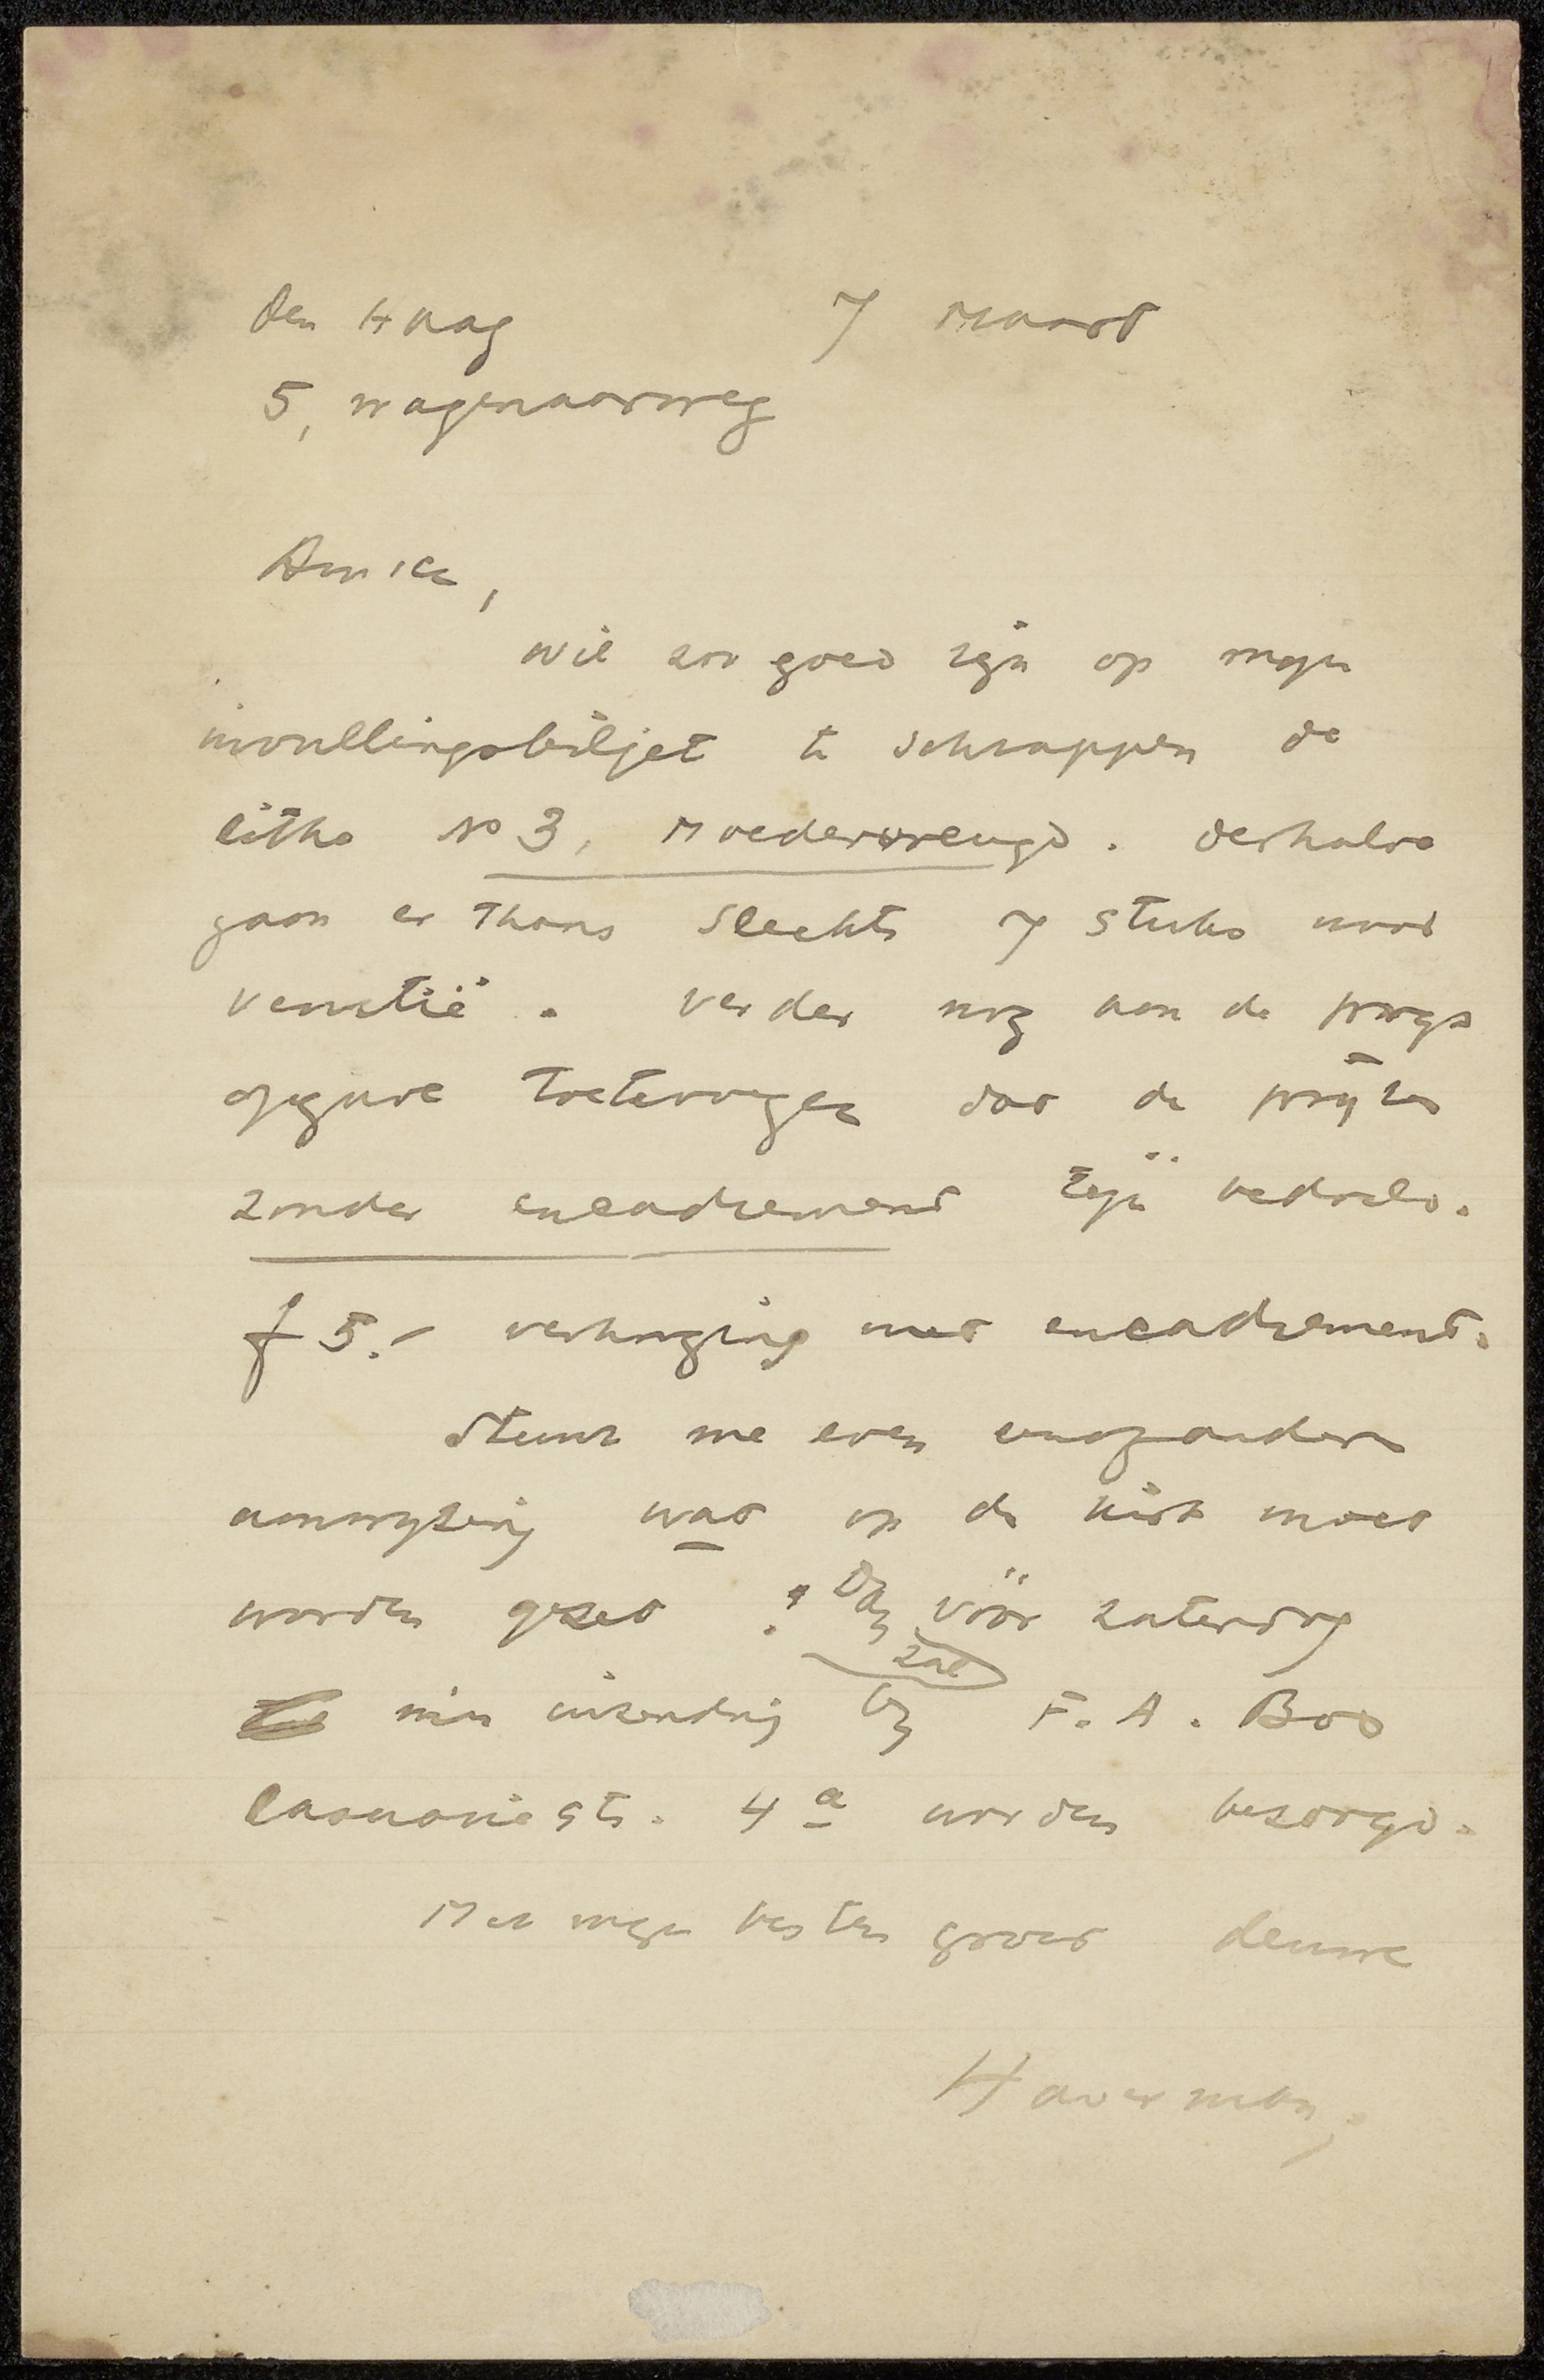 den Haag 7 maart
5, wagenaarweg
Amice,
wil zoo goed zijn op mijn
invullingsbiljet te schrappen de
litho No 3, Moedervreugd. derhalve
gaan er thans slechts 7 stuks naar
Venetië. verder nog aan de prijs
opgave toetevoegen dat de prijzen
zonder encadrement zijn bedoeld.
f 5.- verhooging met encadrement.
Stuur me even eens
aanwijzing wat op de kist moet
worden gezet? Dan vóór zaterdag
zal
mijn inzending bij F. A. Bos
Casuariestr. 4a worden bezorgd.
Met mijn besten groet deuwe
Haverman,